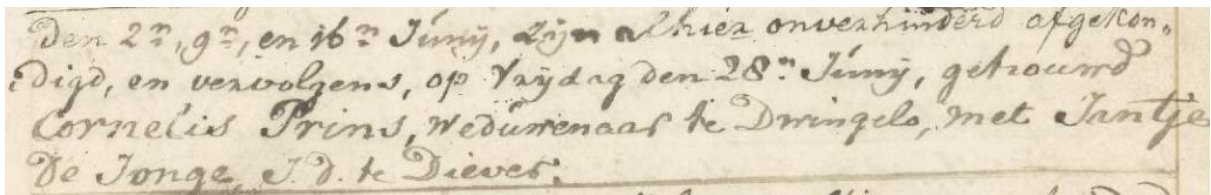 Den 2n, 9n, en 16n Junij, zijn alhier onverhinderd afgekon„
„digd, en vervolgens, op Vrijdag den 28n Junij, getrouwd
Cornelis Prins, Weduwenaar te Dwingelo, met Jantje
De Jonge, J. d. te Diever.